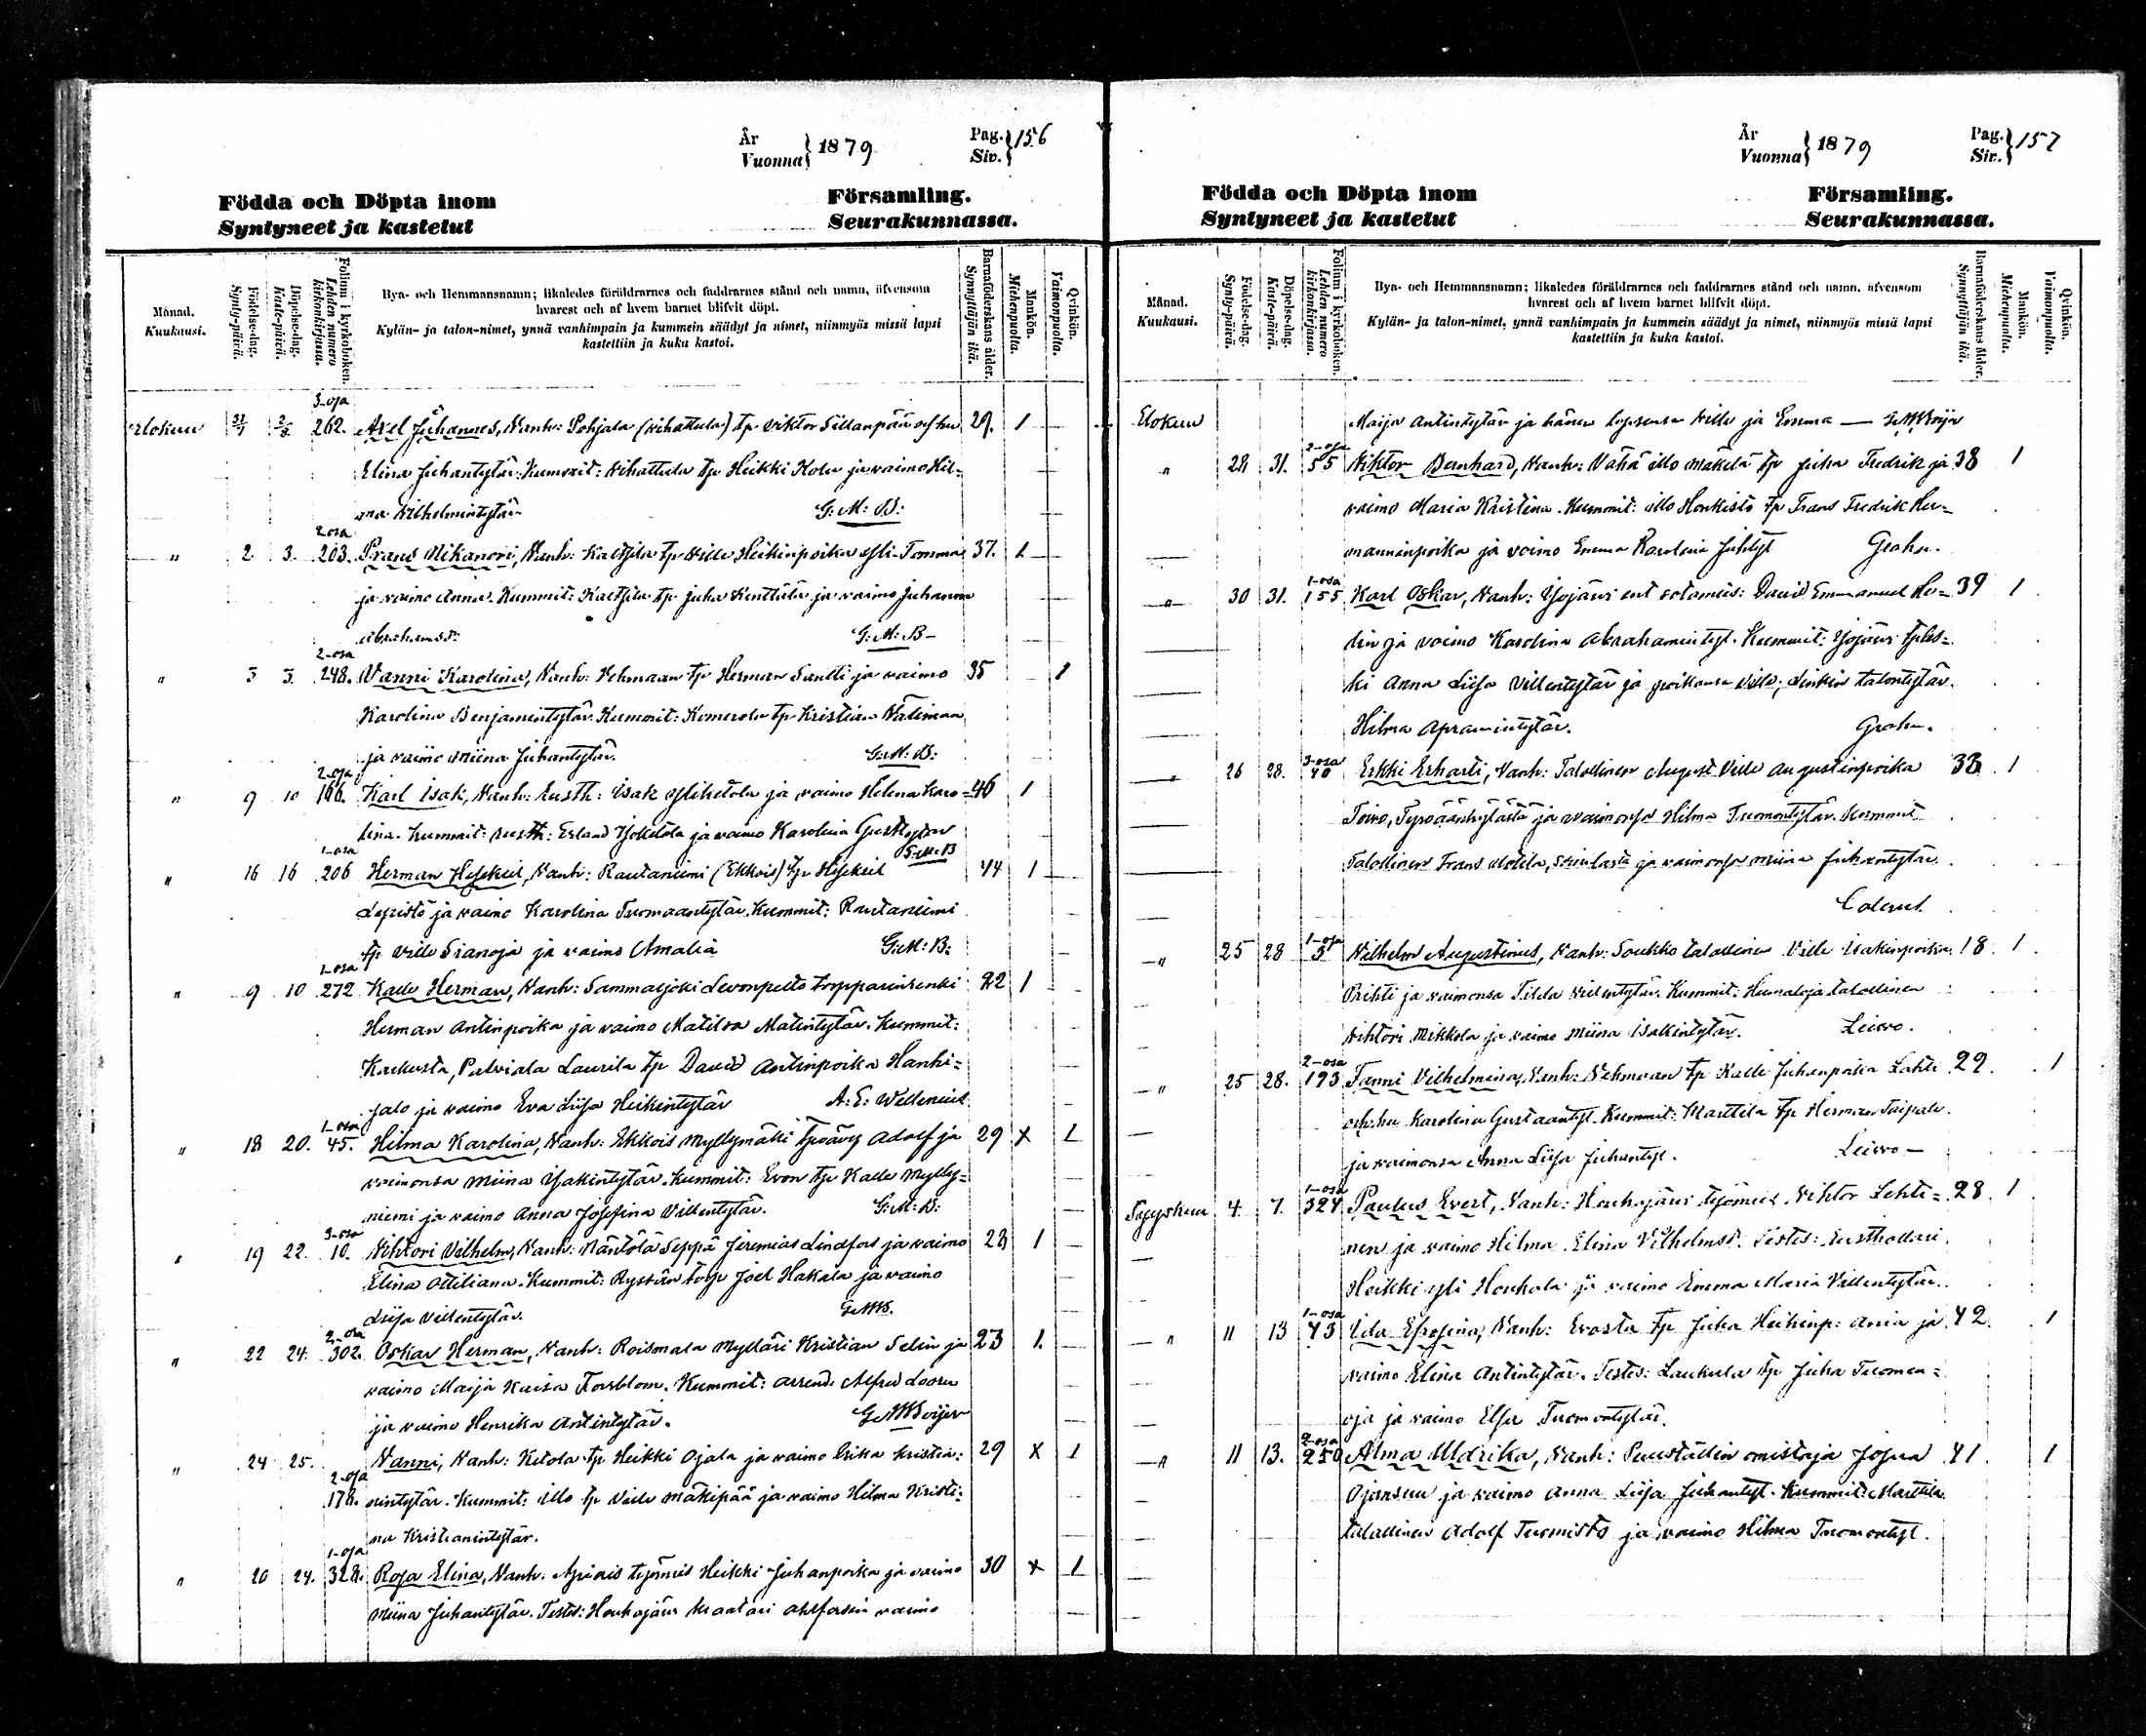 År
Vuonna} 1879
Pag.
Siv.} 156
Födda och Döpta inom Församling.
Syntyneet ja kastetut Seurakunnassa.
Månad.
Kuukausi.
Födelse-dag.
Synty-päivä.
Döpelse-dag.
Kaste-päivä.
Folium i kyrkoboken.
Lehden numero kirkonkirjassa.
Bya- och Hemmansnamn; likaledes föräldrarnes och faddrarnes stånd och namn, äfvensom
hvarest och af hvem barnet blifvit döpt.
Kylän- ja talon-nimet, ynnä vanhimpain ja kummein säädyt ja nimet, niinmyös missä lapsi
kastettiin ja kuka kastoi.
Barnaföderskans ålder.
Synnyttäjän ikä.
Mankön.
Miehenpuolta.
Qvinkön.
Vaimonpuolta.
3-osa
Elokuu 31/7 2/8 262. Axel Juhannes, Vanh: Pohjala (Vihattula) tp Viktor Sillanpää och hu 29. 1
Elina Juhantytär. Kummit: Vihattula tp Heikki Kolu ja vaimo Hil-
ma Vilhelmintytär G: M: B:
2 osa
" 2 3. 203. Frans Nikanori, Vanh: Kaltsila tp Ville Heikinpoika Yli-Tomma 37. 1
ja vaimo Anna. Kummit: Kaltsila tp Juha Kenttälä ja vaimo Juhanna
Abrahamsd: G: M: B-
2-osa
" 3 3. 248. Vanni Karolina, Vanh: Vehmaan tp Herman Santti ja vaimo 35 1
Karolina Benjamintytär. Kummit: Komerola tp Kristian Vätimaa
ja vaimo Miina Juhantytär. G: M: B:
2-osa
" 9 10 166. Karl Isak, Vanh: Rusth: Isak Ylihetola ja vaimo Helena Karo- 46 1
lina. Kummit: Rusth: Erland ja vaimo Karolina Gust.tytär
G: M: B
1-osa
" 16 16 206 Herman Hesekiel, Vanh: Rautaniemi (Ekkois) tp Hesekiel 44 1
Lepistö ja vaimo Karolina Tuomaantytär. Kummit: Rautaniemi
tp Ville Sianoja ja vaimo Amalia G: M: B:
1-osa
" 9 10 272 Kalle Herman, Vanh: Sammaljoki Levonpelto torpparinrenki 22 1
Herman Antinpoika ja vaimo Matilda Matintytär. Kummit:
Kaukusta, Palviala Laurila tp David Antinpoika Hanhi-
salo ja vaimo Eva Liisa Heikintytär A: E: Wellenius
1-osa
" 18 20. 45. Hilma Karolina, Vanh: Ekkois Myllymäki tp Adolf ja 29 x 1
vaimonsa Miina Isakintytär. Kummit: Evon tp Kalle Mylly-
niemi ja vaimo Anna Josefina Villentytär. G: M: B:
3-osa
" 19 22. 10. Vihtori Vilhelm, Vanh: Mäntölä Seppä Jeremias Lindfors ja vaimo 23 1
Elina Ottiliana. Kummit: Ryssän torp Joel Hakala ja vaimo
Liisa Villentytär. G: M: B.
2-osa
" 22 24. 302. Oskar Herman, Vanh: Roismala Mylläri Kristian Selin ja 23 1.
vaimo Maija Kaisa Forsblom. Kummit: arrend. Alfred Looru
ja vaimo Henrika Antintytär. G: M: Boijer
" 24 25. Nanni, Vanh: Ketola tp Heikki Ojala ja vaimo Erika Kristia- 29 x 1
2-osa
178. nintytär. Kummit: Illo tp Ville Mäkipää ja vaimo Hilma Kristi-
na Kristianintytär.
1-osa
" 20 24. 328. Rosa Elina, Vanh. Apiais työmies Heikki Juhanpoika ja vaimo 30 x 1
Miina Juhantytär. Testes: Houhajärvi Maalari Ahlforsin vaimo
År
Vuonna} 1879
Pag.
Siv.} 157
Födda och Döpta inom Församling.
Syntyneet ja kastetut Seurakunnassa.
Månad.
Kuukausi.
Födelse-dag.
Synty-päivä.
Döpelse-dag.
Kaste-päivä.
Folium i kyrkoboken.
Lehden numero kirkonkirjassa.
Bya- och Hemmansnamn; likaledes föräldrarnes och faddrarnes stånd och namn, äfvensom
hvarest och af hvem barnet blifvit döpt.
Kylän- ja talon-nimet, ynnä vanhimpain ja kummein säädyt ja nimet, niinmyös missä lapsi
kastettiin ja kuka kastoi.
Barnaföderskans ålder.
Synnyttäjän ikä.
Mankön.
Miehenpuolta.
Qvinkön.
Vaimonpuolta.
Elokuu Maija Antintytär ja hänen lapsensa Ville ja Emma — G: M: Boijer
2-osa
" 28 31. 55 Viktor Bernhard, Vanh: Vähä Illo Mäkelä tp Juha Fredrik ja 38 1
vaimo Maria Kristina. Kummit: Illo Honkisto tp Frans Fredrik Her-
manninpoika ja vaimo Emma Karolina Juhtyt Grahn.
1-osa
" 30 31. 155 Karl Oskar, Vanh: Ijojärvi ent sotamies: David Emmanuel He- 39 1
lin ja vaimo Karolina Abrahamintyt. Kummit: Ijojärvi tp les-
ki Anna Liisa Villentytär ja poikansa Ville, Linkin talontytär
Hilma Apramintytär. Grahn.
3-osa
" 26 28. 40 Erkki Erharti, Vanh: Talollinen August Ville Augustinpoika 33 1
Toivo, Tyrväänkylästä ja vaimonsa Hilma Tuomontytär. Kummit
Talollinen Frans Uotila, ja vaimonsa Miina Juhantytär.
1-osa
" 25 28 5 Vilhelm Augustinus, Vanh: Soukko talollinen Ville Isakinpoika 18. 1
Prihti ja vaimonsa Tilda Villentytär. Kummit: Humaloja talollinen
Vihtori Mikkola ja vaimo Miina Isakintytär. Leivo.
2-osa
" 25 28. 193 Fanni Vilhelmina, Vanh: Vehmaan tp Kalle Juhanpoika Lahti 29. 1
och hu Karolina Gustaantyt. Kummit: Marttila tp Herman Taipale
ja vaimonsa Anna Liisa Juhantyt. Leivo —
1-osa
Syyskuu 4 7. 324 Paulus Evert, Vanh: Houhajärvi työmies Vihtor Lehti- 28. 1
nen ja vaimo Hilma Elina Vilhelmsd. Testes: Rusthollari
Heikki Yli Houhala ja vaimo Emma Maria Villentytär.
1-osa
" 11 13 43 Ida Efrosina, Vanh: Evasta tp Juha Heikinp: Ania ja 42. 1
vaimo Elina Antintytär. Testes: Laukula tp Juha Tuomen-
oja ja vaimo Elsa Tuomontytär.
2-osa
" 11 13. 250 Alma Uldrika, Vanh: Puuställin omistaja Josua 41 1
Ojansuu ja vaimo Anna Liisa Juhantyt. Kummit: Marttila
talollinen Adolf Tuomisto ja vaimo Hilma Tuomontyt.